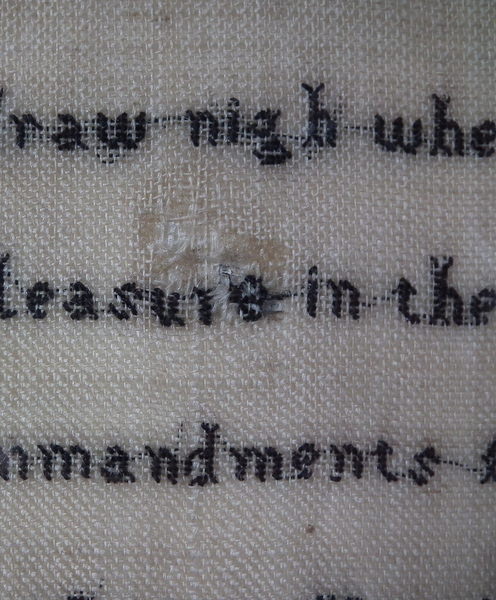 draw nigh whe
leasure in the
mmandments